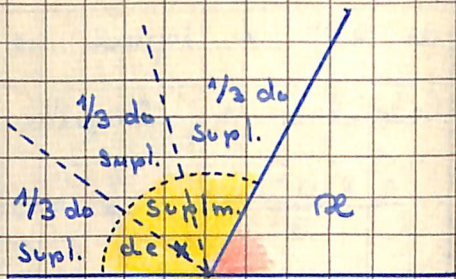 1/3 do
supl.
1/3 do
supl.
1/3 do
supl.
suplm.
de x
x